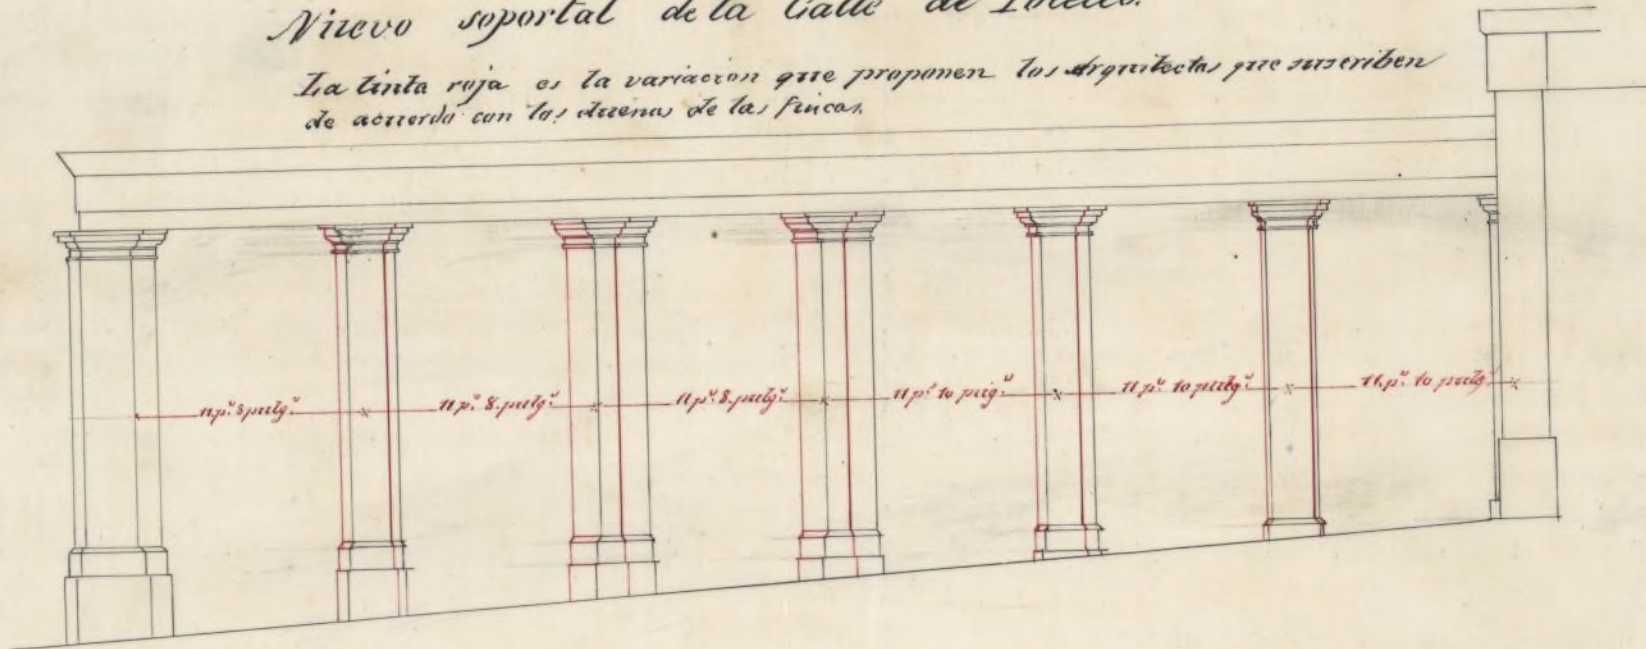 Nuevo soportal de la Calle de
La tinta roja es la variacion que proponen los Arquitectos que suscriben
de acuerdo con los duenos de las fincas.
11 ps. 8 pulgs. 11 ps. 8. pulgs. 11 ps. 8. pulgs. 11 ps. 10 pulgs. 11 ps. 10 pulgs. 11. ps. 10 pulgs.